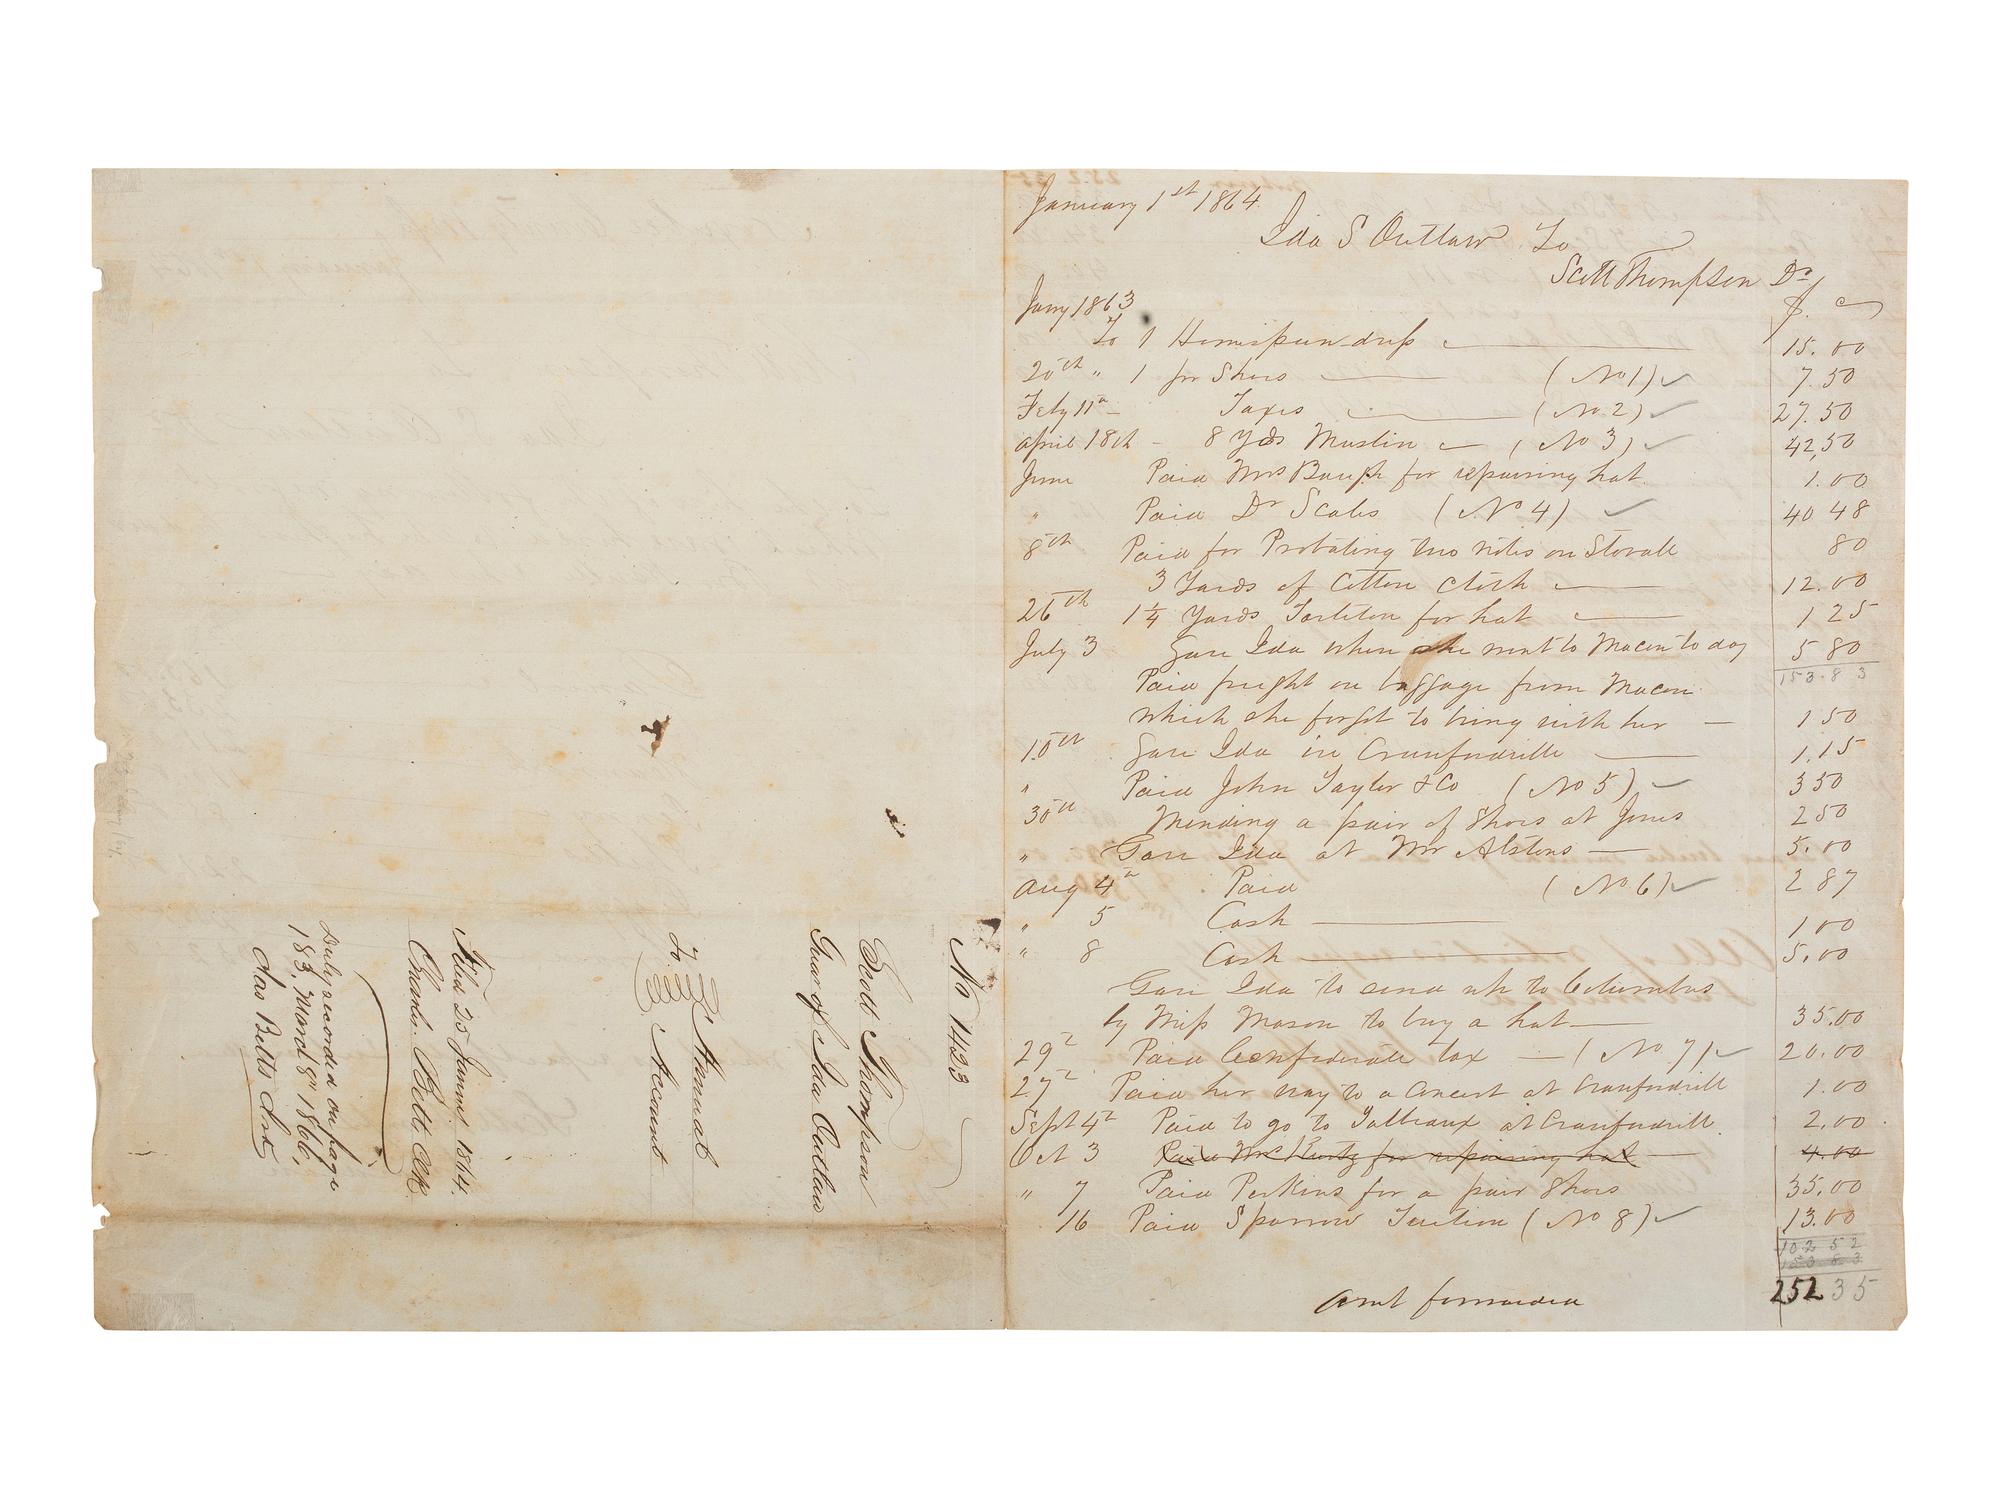 No 1423
Scott Thompson
Guar of Ida Outlaw
To
Annual
Account
Filed 25 Januy 1864
Charls. Bett Clk
Duly recorded on page
183, March 8" 1866,
Jas Betts Clk
January 1st 1864
Ida S Outlaw To
Scott Thompson Dr
Jany 1863 $ c
To 1 Homespun dress 15.00
20th " 1 pr Shoes (No 1) ✓ 7.50
Feby 11th Taxes (No 2) ✓ 27.50
April 18th - 8 Yds Muslin (No 3) ✓ 42,50
June Paid Mrs Baugh for repairing hat 1.00
" Paid Dr Scales (No 4) ✓ 40 48
8th Paid for Probating two notes on Stovall 80
3 Yards of Cotton cloth 12.00
26th 1 1/4 Yards Tarleton for hat 1 25
July 3 Gave Ida when she went to Macon to day 5 80
153.83
Paid freight on baggage from Macon
which she forgot to bring with her - 1 50
10th Gave Ida in Crawfordville 1.15
" Paid John Taylor & Co (No 5) ✓ 3 50
30th Mending a pair of Shoes at Jones 2 50
" Gave Ida at Mr Alstons 5.00
Aug 4th Paid (No 6) ✓ 2 87
" 5 Cash 1 00
" 8 Cash 5.00
Gave Ida to send up to Columbus
by Miss Mason to buy a hat 35.00
29th Paid Confederate tax - (No 7) ✓ 20.00
27th Paid her way to a Concert at Crawfordvill 1.00
Sept 4th Paid to go to Tableaux at Crawfordvill 2.00
Oct 3 Paid Mrs Kurtz for repairing hat 4.00
" 7 Paid Perkins for a pair Shoes 35.00
16 Paid Sparrow Tuition (No 8) ✓ 13.00
102 52
153 83
252 35
Amt forwarded